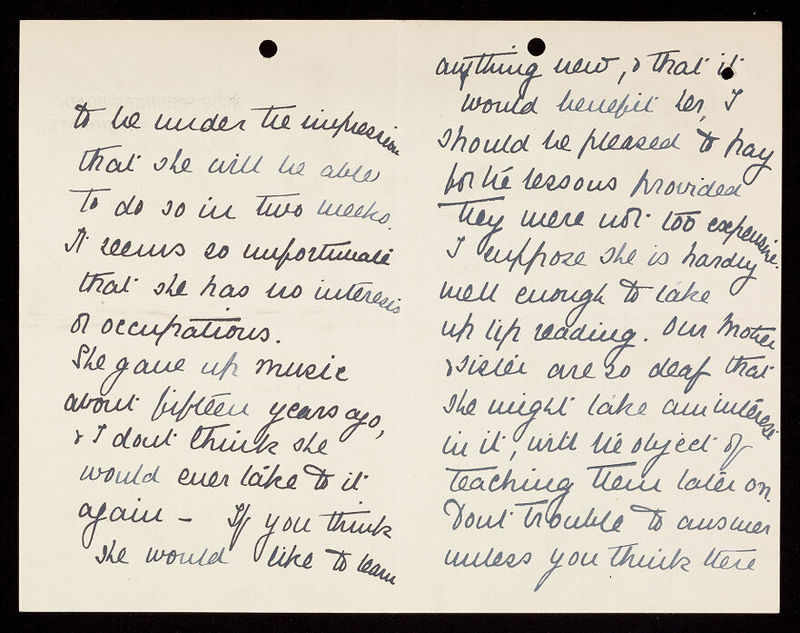 to be under the impression
that she will be able
to do so in two weeks.
It seems so unfortunate
that she has no interests
or occupations.
She gave up music
about fifteen years ago,
& I dont think she
would ever take to it
again - If you think
she would like to learn
anything new, & that it
would benefit her, I
should be pleased to pay
for the lessons provided
they were not too expensive.
I suppose she is hardly
well enough to take
up lip reading. Our Mother
& sister are so deaf that
she might take an interest
in it, with the object of
teaching them later on.
Dont trouble to answer
unless you think there